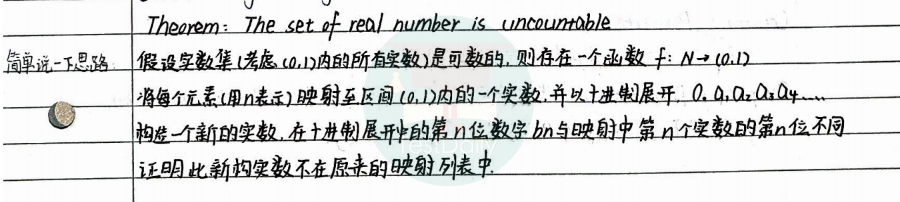 Theorem: The set of real number is uncountable
简单说一下思路
假设实数集(考虑(0.1)内的所有实数)是可数的,则存在一个函数 f: N→(0.1)
将每个元素(用n表示)映射至区间(0.1)内的一个实数,并以十进制展开. 0.a₁a₂a₃a₄.....
构造一个新的实数,在十进制展开中的第n位数字bn与映射中第n个实数的第n位不同
证明此新构实数不在原来的映射列表中.